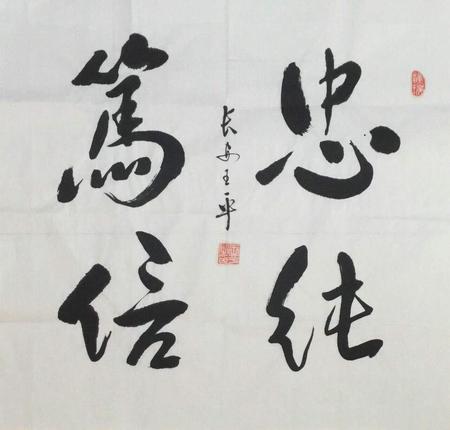 忠纯
篤信
长安王平